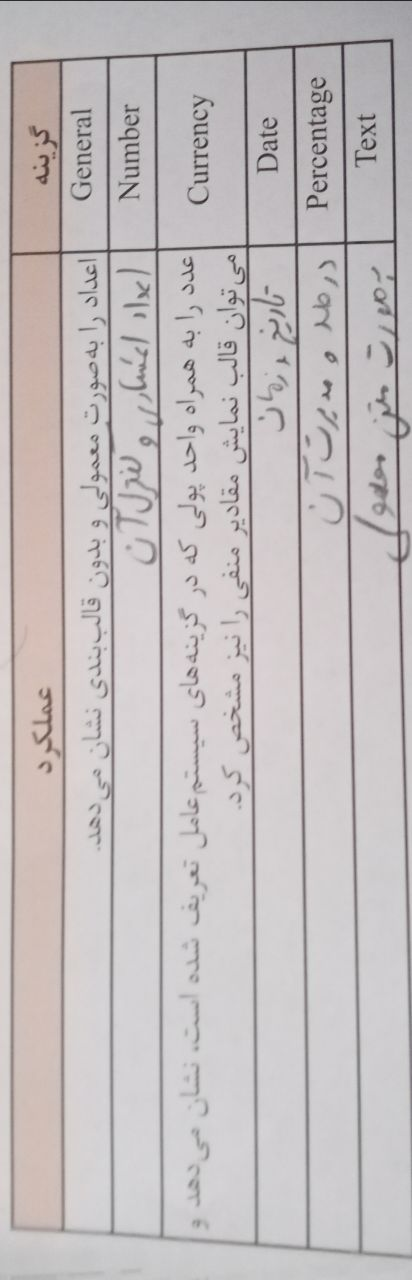 گزینه
عملکرد
General
اعداد را به‌صورت معمولی و بدون قالب‌بندی نشان می‌دهد.
Number
اعداد اعشاری و کنترل آن
Currency
عدد را به همراه واحد پولی که در گزینه‌های سیستم‌عامل تعریف شده است، نشان می‌دهد و
می‌توان قالب نمایش مقادیر منفی را نیز مشخص کرد.
Date
تاریخ و زمان
Percentage
درصد و مدیرت آن
Text
بصورت متن معمولی